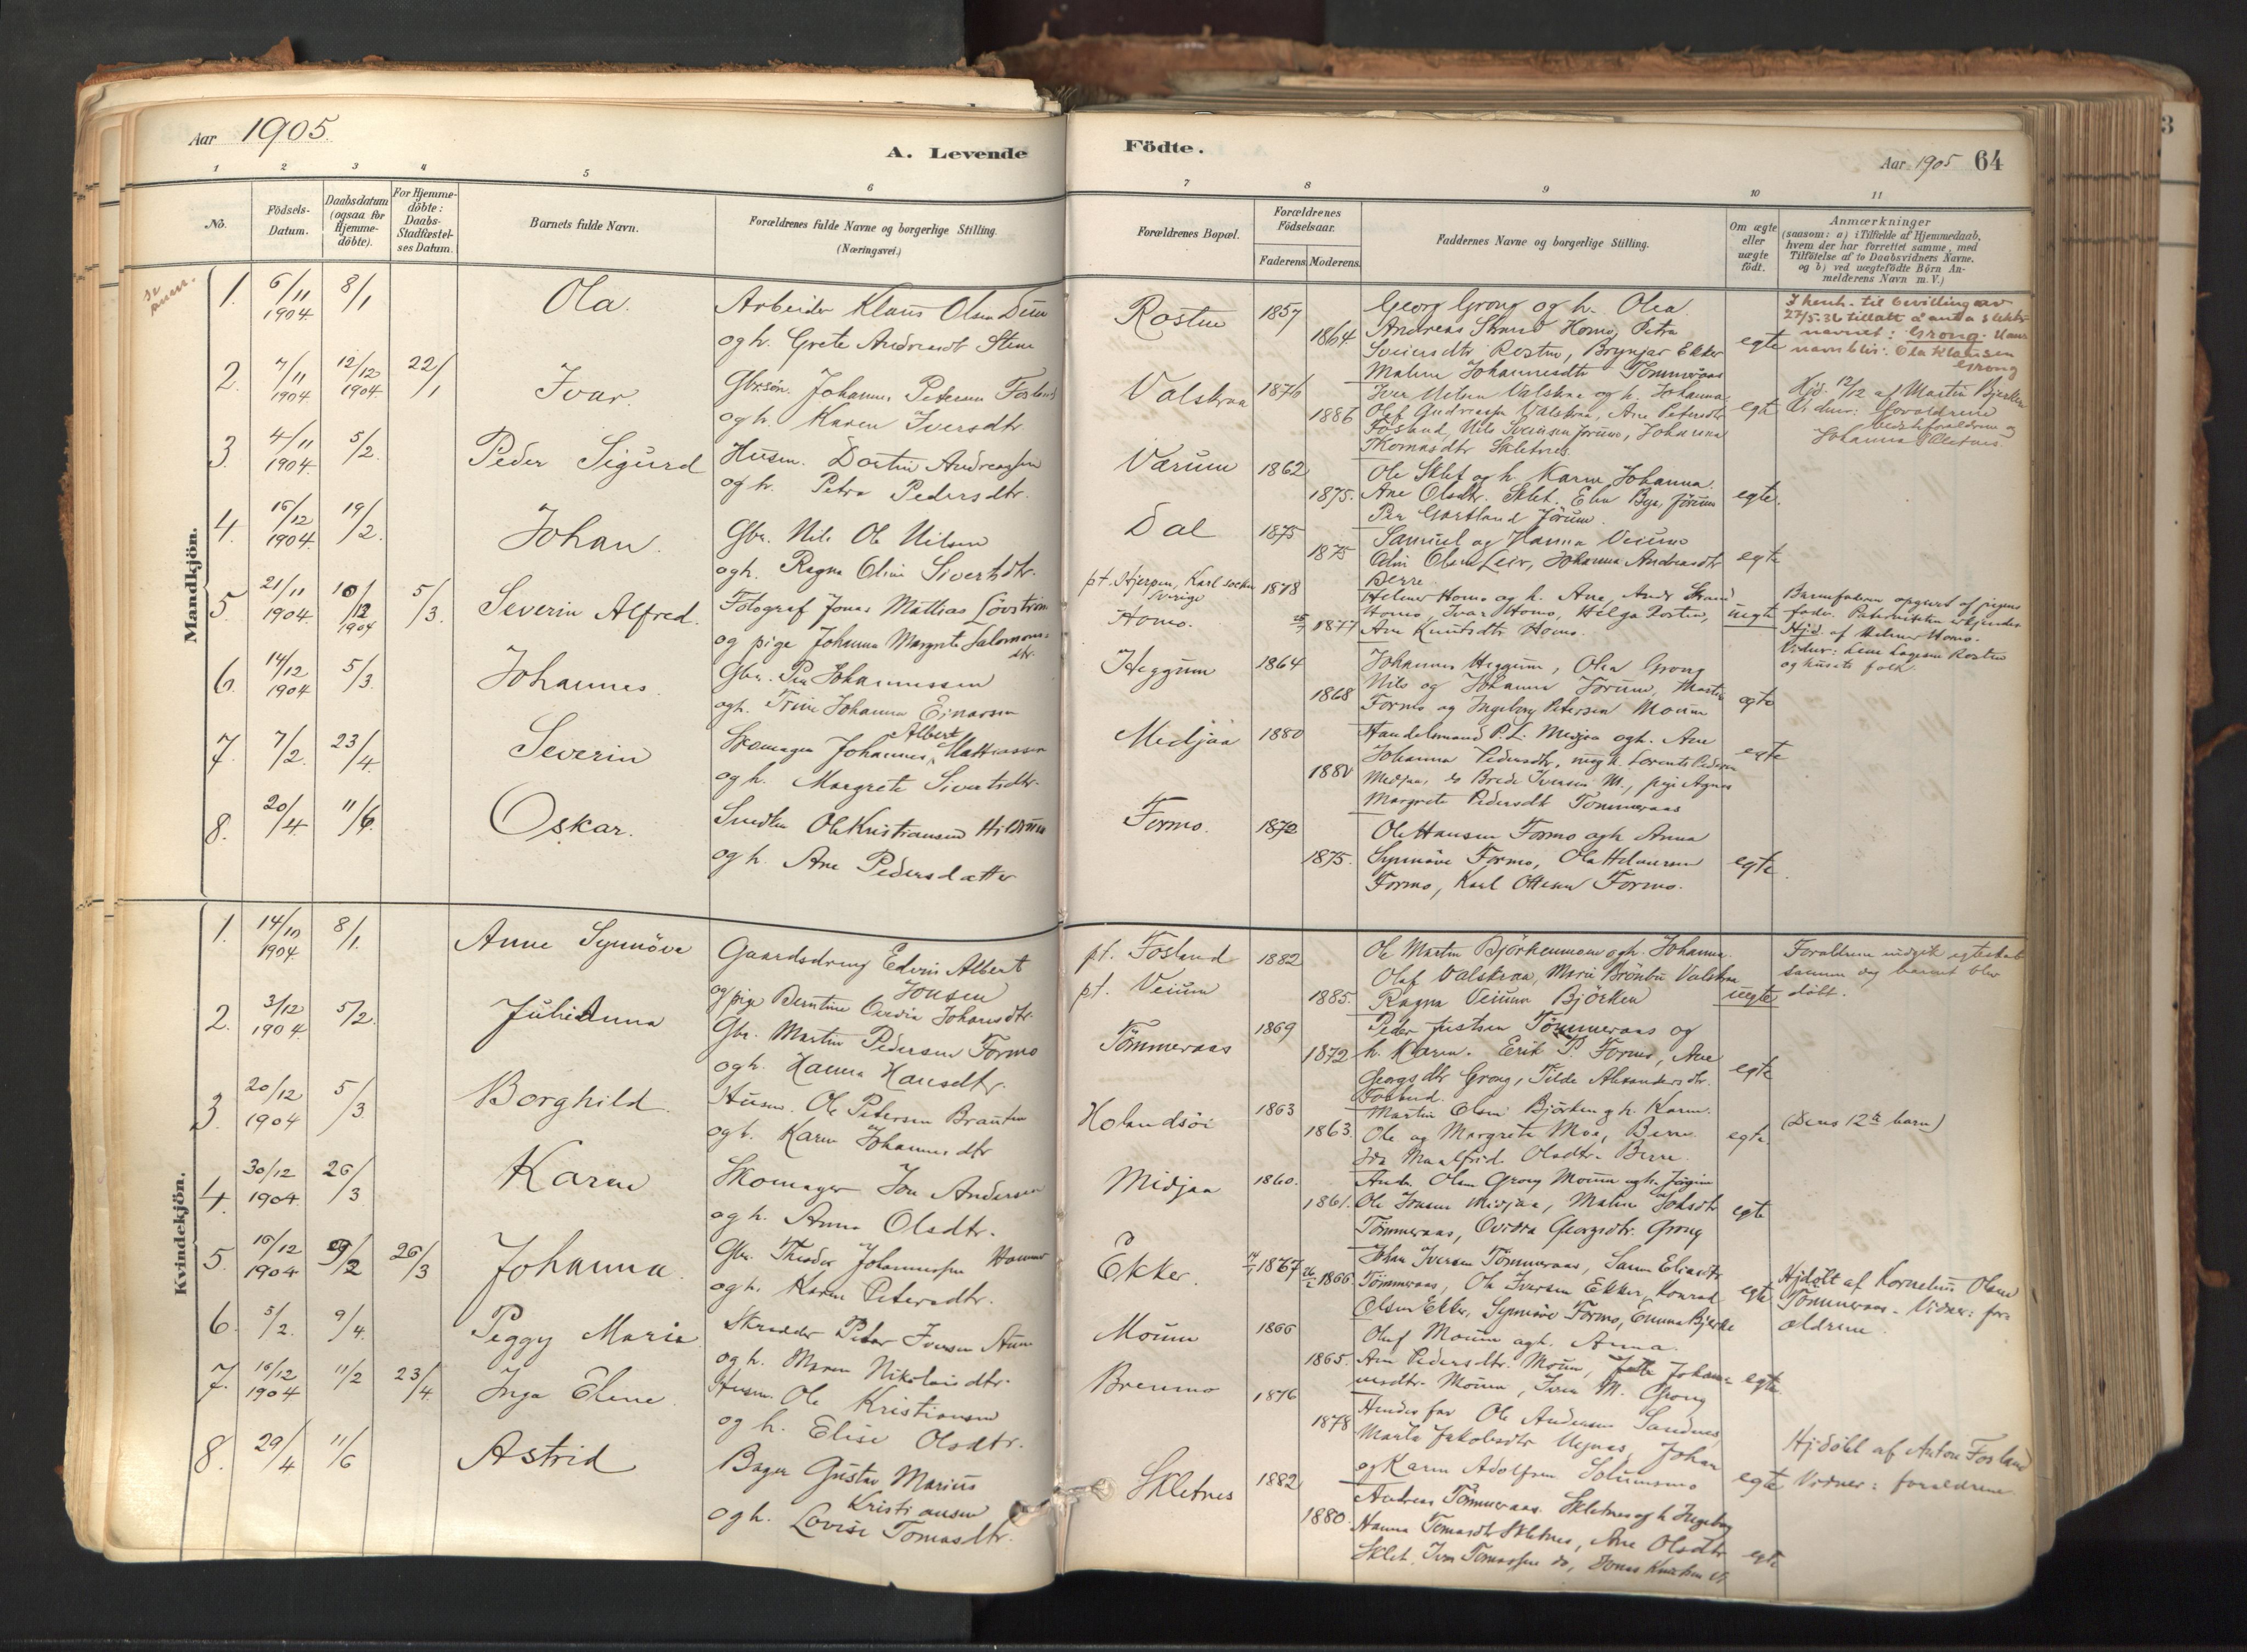 Aar 1905.
A. Levende
1 2 3 4 5 6
No.
Födsels-
Datum.
Daabsdatum
(ogsaa for
Hjemme-
döbte).
For Hjemme-
döbte:
Daabs-
Stadfæstel-
ses Datum.
Barnets fulde Navn.
Forældrenes fulde Navne og borgerlige Stilling.
(Næringsvei.)
Mandkjön.
1. 6/11 1904. 8/1 Ola. Arbeider Klaus Olsen
og h. Grete Andreasdt
2. 7/11 1904 12/12 1904 22/1 Ivar. Gbrsön. Johannes Petersen Fosland
og h. Karen Iversdtr.
3. 4/11 1904. 5/2. Peder Sigurd Husm. Andreassen
og h. Petra Pedersdtr.
4. 16/12 1904. 19/2. Johan. Gbr. Nils Ole Nilsen
og h. Ragna Oline Sivertsdtr.
5. 21/11 1904 10/12 1904 5/3. Severin Alfred. Fotograf Jonas Mathias Lövström
og pige Johanna Margrete Salomons-
dtr.
6. 14/12 1904 5/3. Johannes. Gbr. Per Johannessen
og h. Trine Johanna Einarsen
7. 7/2. 23/4. Severin Skomager Johannes Albert Mathiassen
og h. Margrete Sivertsdtr.
8. 20/4 11/6. Oskar. Ole Kristiansen
og h. Ane Pedersdatter
Kvindekjön.
1. 14/10 1904. 8/1. Anne Synnöve Gaardsdreng Edvin Albert
Jonsen
og pige Berntine Johansdtr.
2. 3/12 1904. 5/2. Julie Anna Gbr. Martin Pedersen Formo
og h. Hanna Hansdtr.
3. 20/12 1904 5/3. Borghild. Husm. Ole Petersen
og h. Karen Johannesdtr
4. 30/12 1904. 26/3 Karen Skomager Jon Andersen
og h. Anna Olsdtr.
5. 16/12 1904 /2 26/3 Johanna. Gbr. Theodor Johannessen
og h. Karen Petersdtr.
6. 5/2. 9/4. Peggy Marie Skrædder Peter Iversen
og h. Maren Nikolaisdtr.
7. 16/12 1904 11/2 23/4. Inga Elene. Husm. Ole Kristiansen
og h. Elise Olsdtr.
8. 29/4 11/6 Astrid Bager Gustav Marius
Kristiansen
og h. Lovise Tomasdtr.
Födte.
Aar 1905 64
7 8 9 10 11
Forældrenes Bopæl.
Forældrenes
Födselsaar.
Faderens. Moderens.
Faddernes Navne og borgerlige Stilling.
Om ægte
eller
uægte
födt.
Anmærkninger
(saasom: a) i Tilfælde af Hjemmedaab,
hvem der har forrettet samme, med
Tilföielse af to Daabsvidners Navne.
og b) ved uægtefödte Börn An-
melderens Navn m. V.)
Rosten 1857 Georg Grong og h. Olea.
1864 Andreas Homo, Petra
Rosten, Brynjar Ekker
Malene Johannesdtr Tömmeraas
egte
27/5.36 tillatt å anta slekts-
navnet: Grong. Hans
navn blir: Ola Klausen
Grong
Valskraa 1876 Iver Nilsen Valskraa og h. Johanna
1886 Olaf Valskraa, Ane Petersdtr
Fosland, Nils Svensen Jörum, Johanna
Thomasdtr Skletnes.
egte
Hjd. 12/12 af Martin Bjerken
Vidner: forældrene
bedsteforældrene og
Johanna Skletnes.
Værum 1862 Ole Sklet og h. Karen Johanna.
1875. Ane Olsdtr. Sklet. Elen Jörum
Per Gartland Jörum.
egte.
Dal 1875 Samuel og Hanna Veium
1875 Odin Olsen Lein, Johanna Andreasdtr
Berre
egte
pt. Hjerpen, Karl socken
Sverige 1878
Homo. 1877
Helmer Homo og h. Ane,
Homo, Ivar Homo, Helga Rosten,
Ane Knutsdtr Homo.
uegte
Barnefaderen opgivet af pigens
fader.
Hjd. af Helmer Homo.
Vidner: Lene Rosten
og husets folk.
Heggum 1864 Johannes Heggum, Olea Grong
1868 Nils og Johanna Jörum, Martin
Formo og Ingeborg Petersen Moum
egte
Medjaa 1880 Handelsmand P. L. Medjaa og h. Ane
1880 Johanna Pedersdtr, Lorents Pedersen
Medjaa, do Brede Iversen M., pige Agnes
Margrete Pedersdt Tömmeraas
egte
Formo. 1872 Ole Hansen Formo og h. Anna
1875. Synnöve Formo,
Formo, Karl Ottesen Formo.
egte.
pt. Fosland 1882 Ole Martin Björkenmoen og h. Johanna
Olaf Valskraa, Marie Valskraa
pt. Veium 1885. Ragna Veium Björken
uegte
Forældrene indgik egteskab
samme dag barnet blev
döbt.
Tömmeraas 1869 Peder Tömmeraas og
1872 h. Karen. Erik P. Formo, Ane
Georgsdtr Grong, Tilda Alexandersdtr.
Fosland.
egte
Holandsöi 1863 Martin Olsen Björken og h. Karen.
1863. Ole og Margrete Moa, Berre.
Ida Maalfrid Olsdtr. Berre.
egte.
(Deres 12te barn)
Midjaa 1860. Andr. Olsen Grong Moum og h. Jörgine
1861. Ole Jonsen Midjaa, Malene
Tömmeraas, Ovidia Georgsdtr. Grong
egte
Ekker. 1867 1866. Johan Iversen Tömmeraas, Eliasdtr
Tömmeraas, Ole Iversen Ekker, Konrad
Olsen Ekker, Synnöve Formo, Emma Bjerke
egte
Hjdöbt af Kornelius Olsen
Tömmeraas. Vidner: for-
ældrene.
Moum 1866 Oluf Moum og h. Anna.
1865. Ane Pedersdtr. Moum, Johan-
nesdtr. Moum, M. Grong
egte.
Brenmo 1876 Ole Andersen Sandnes
1878 Marta Jakobsdtr Johan
og Karen Adolfsen Solumsmo
egte
Hjdöbt af Anton Fosland
Vidner: forældrene.
Skletnes 1882 Andreas Tömmeraas Skletnes og h Ingeborg
1880. Hanna Tomasdtr Skletnes, Ane Olsdtr
Sklet. Tomassen do, Jonas
egte
3